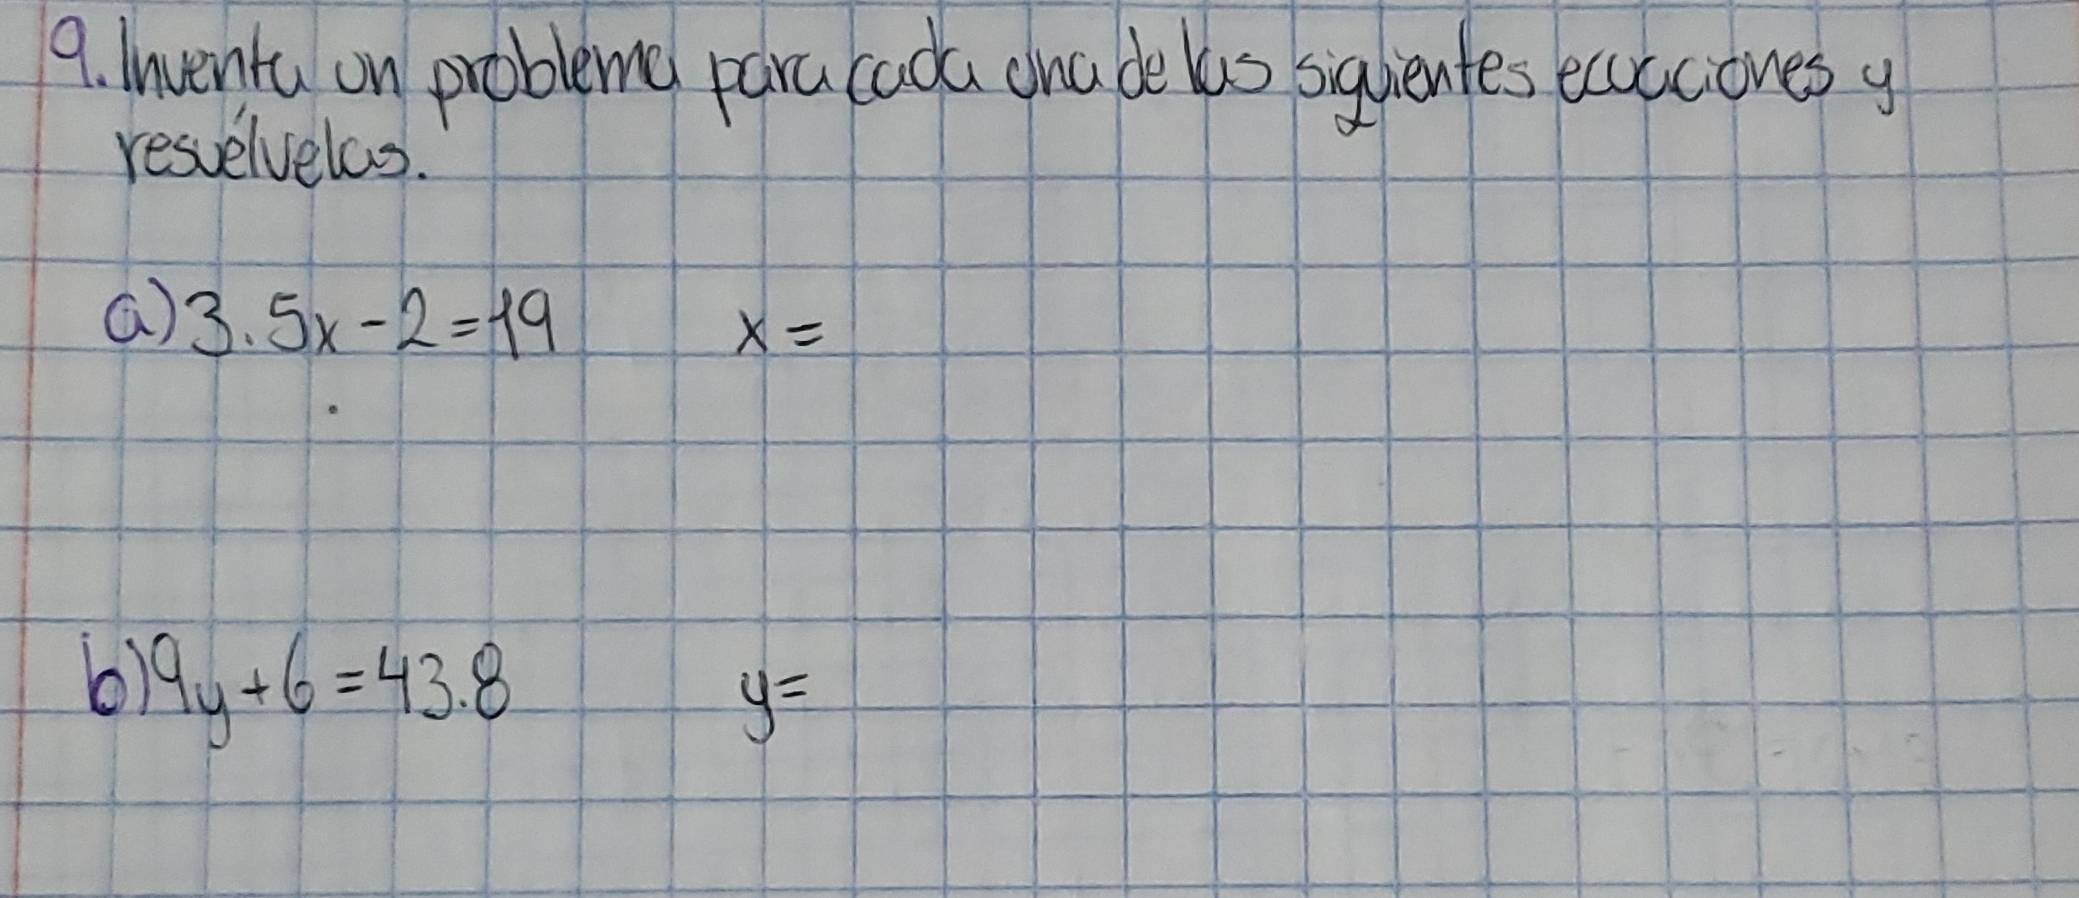 9. Inventa un problema para cada una de las siguientes ecuaciones y
resuélvelas.
a) 3.5x - 2 = 19 x =
b) 9y + 6 = 43.8 y =